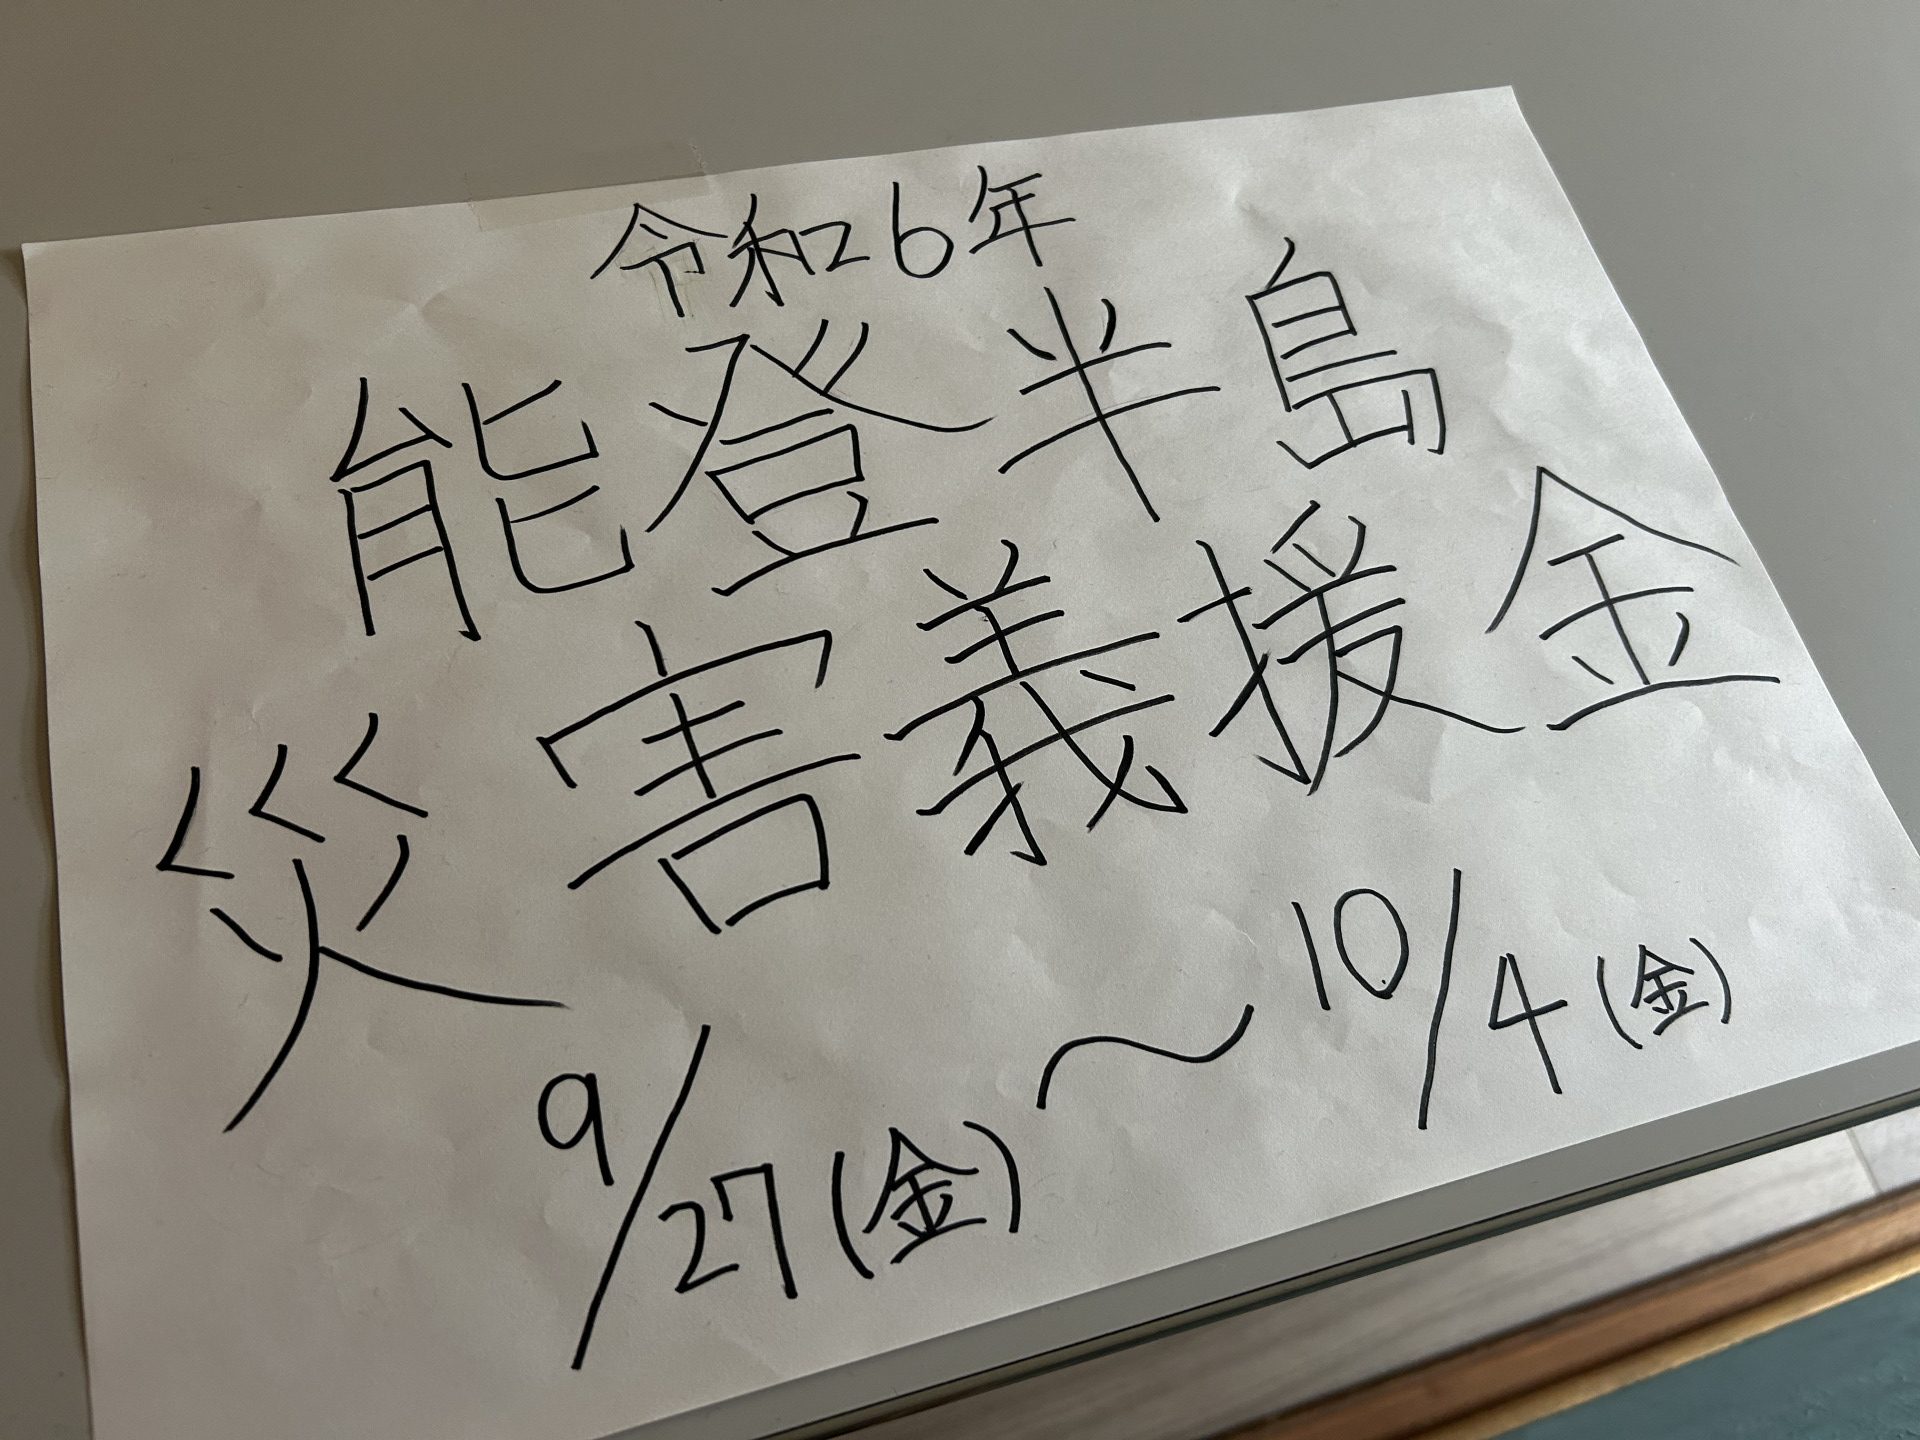 令和6年
能登半島
災害義援金
9/27(金)～10/4(金)